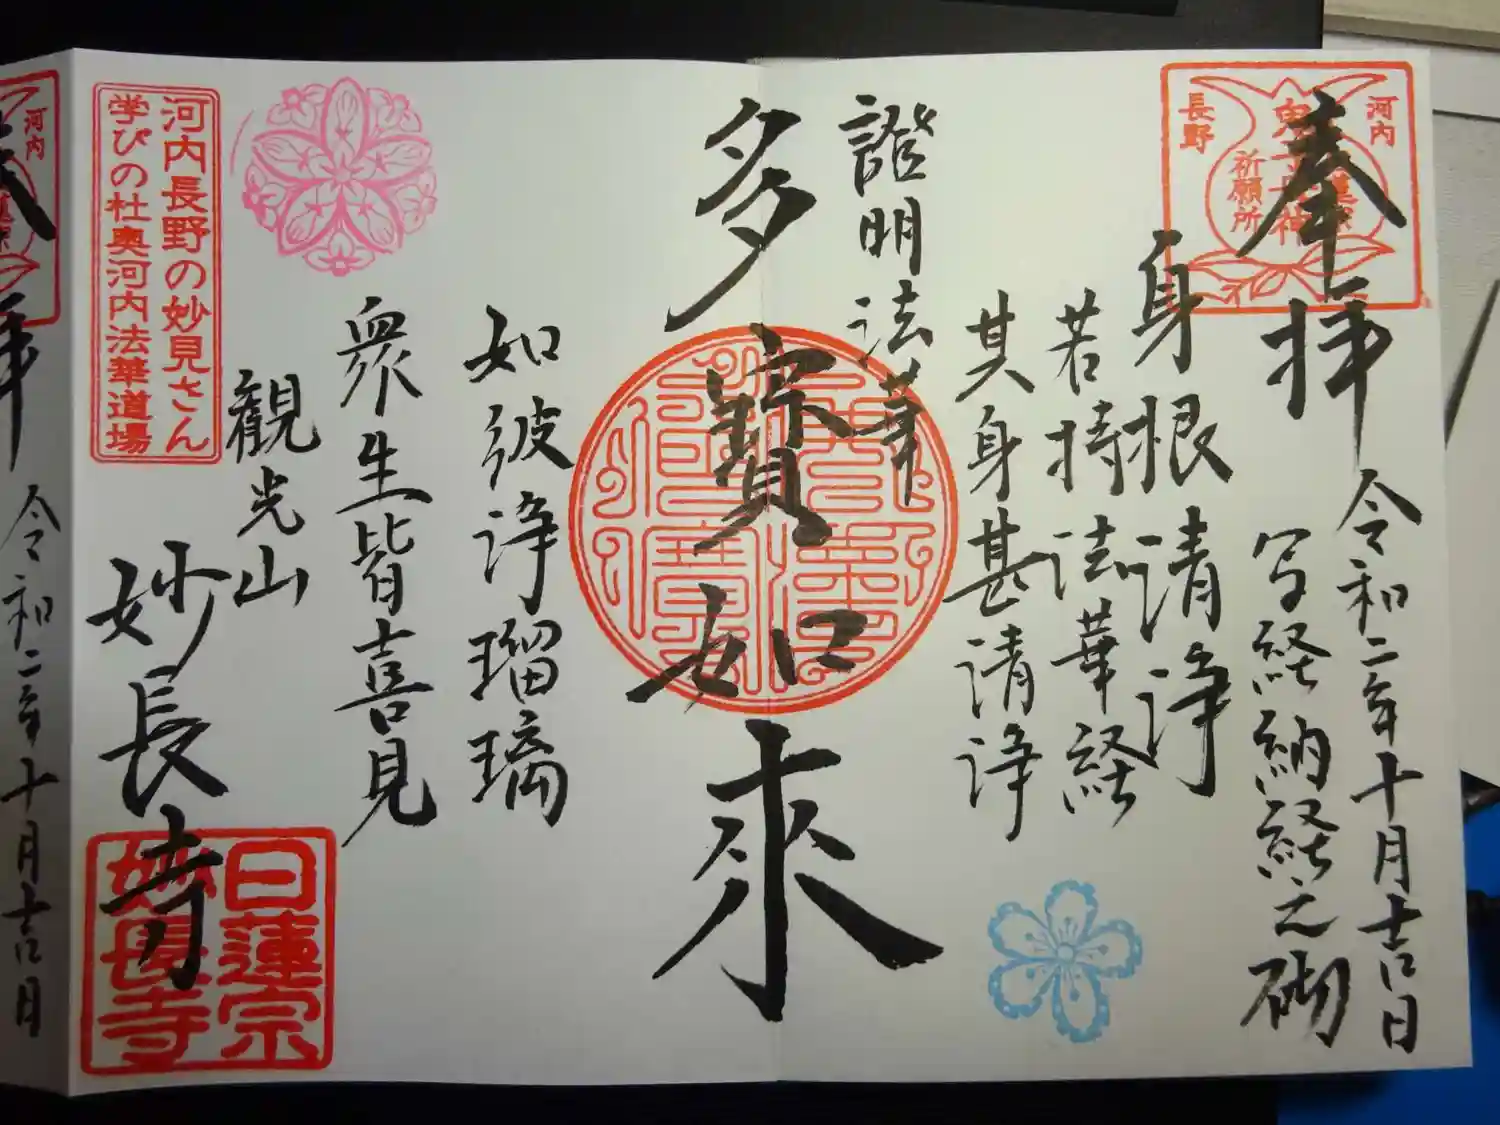 奉拝
河内
長野
鬼子母神
祈願所
令和二年十月吉日
写経納経之砌
身根清浄
若持法華経
其身甚清浄
證明法華
多寳如来
如彼浄瑠璃
衆生皆喜見
觀光山
妙長寺
河内長野の妙見さん
学びの杜奥河内法華道場
日蓮宗
妙長寺
河内
令和二年十月吉日